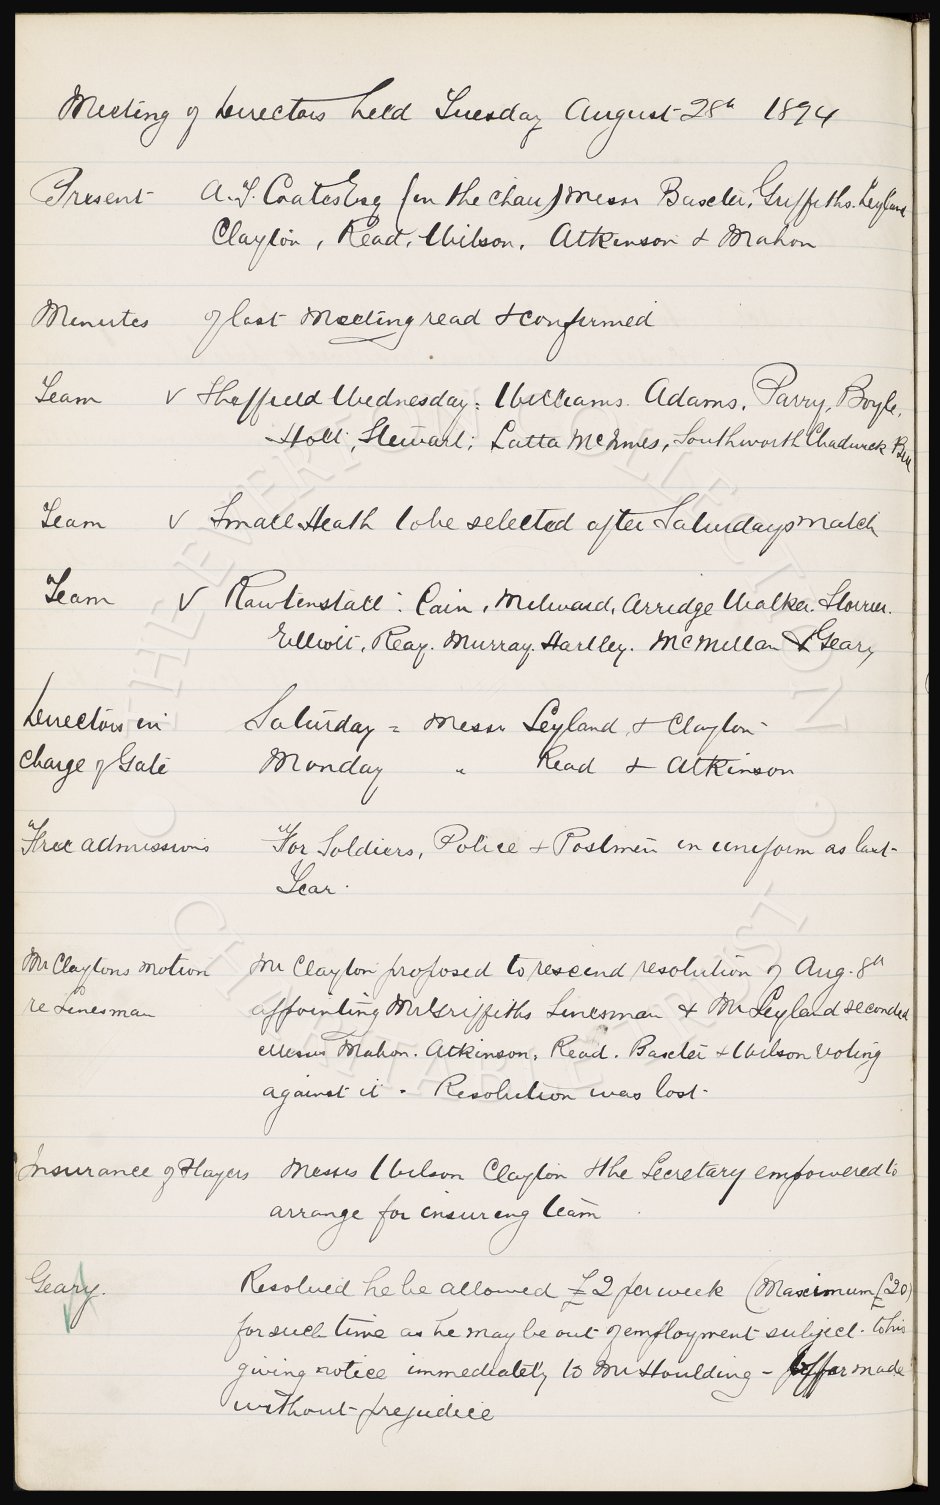 Meeting of Directors held Tuesday August 28th 1894
Present A.T. Coates Esq (in the chair) Messrs Baxter, Griffiths. Leyland
Clayton, Read, Wilson, Atkinson & Mahon
Minutes of last Meeting read & confirmed
Team v Sheffield Wednesday: Williams. Adams, Parry, Boyle,
Holt, Stewart; Latta McInnes, Southworth Chadwick Bell
Team v Small Heath to be selected after Saturdays match
Team v Rawtenstall: Cain, Milward, Arridge Walker. Storrier.
Elliott, Reay. Murray. Hartley. McMillan & Geary
Directors in Saturday = Messrs Leyland & Clayton
charge of Gate Monday " Read & Atkinson
Free admissions For Soldiers, Police & Postmen in uniform as last
Year.
Mr Claytons motion Mr Clayton proposed to rescind resolution of Aug. 8th
re Linesman appointing Mr Griffiths Linesman & Mr Leyland seconded
Messrs Mahon. Atkinson, Read. Baxter & Wilson voting
against it. Resolution was lost.
Insurance of Players Messrs Wilson Clayton & the Secretary empowered to
arrange for insuring team
Geary. Resolved he be allowed £2 per week (Maximum £20)
for such time as he may be out of employment subject to his
giving notice immediately to Mr Houlding - offer made
without prejudice
THE EVERTON COLLECTION
CHARITABLE TRUST